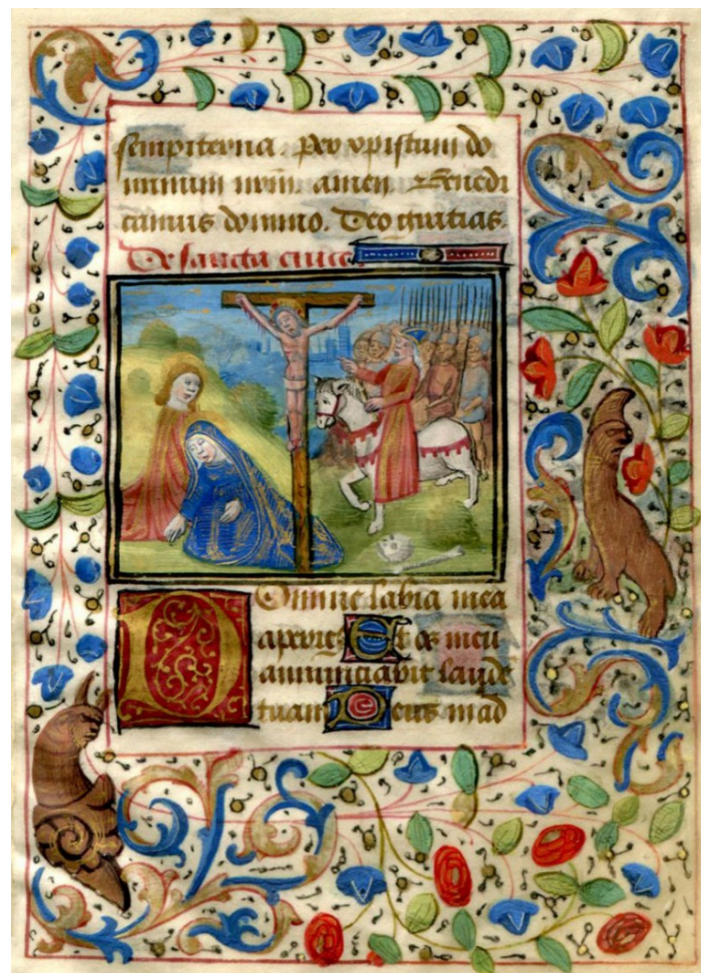 sempiterna. Per xpistum do
minum nostrum amen Benedi
camus domino. Deo gratias.
De sancta cruce.
Domine labia mea
aperies Et os meu
annunciabit laude
tuam Deus in ad